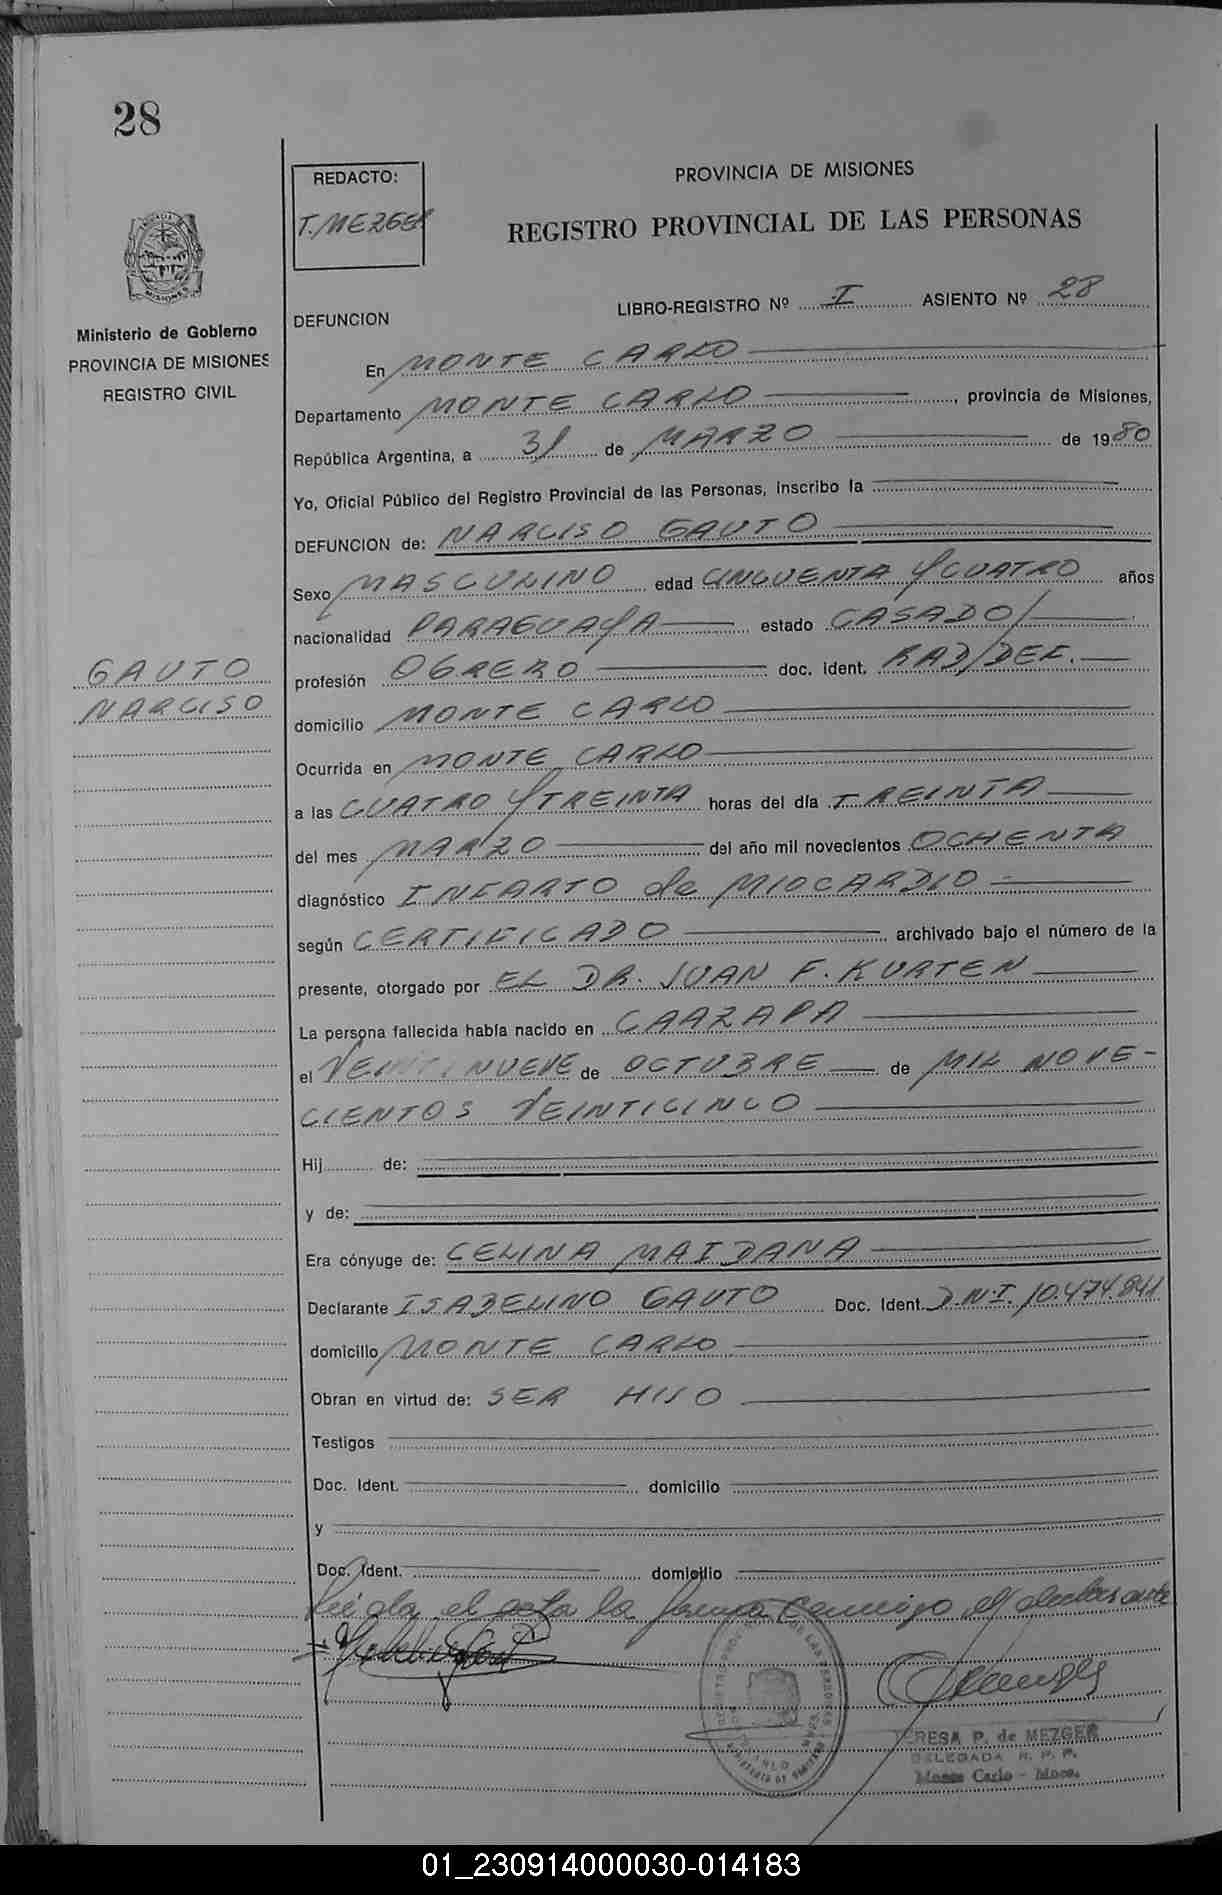 28
REDACTO:
T. MEZGER
PROVINCIA DE MISIONES
REGISTRO PROVINCIAL DE LAS PERSONAS
MISIONES
Ministerio de Gobierno
PROVINCIA DE MISIONES
REGISTRO CIVIL
DEFUNCION
LIBRO-REGISTRO Nº I ASIENTO Nº 28
En MONTE CARLO
Departamento MONTE CARLO, provincia de Misiones,
República Argentina, a 31 de MARZO de 1980
Yo, Oficial Público del Registro Provincial de las Personas, inscribo la
DEFUNCION de: NARCISO GAUTO
Sexo MASCULINO edad CINCUENTA Y CUATRO años
nacionalidad PARAGUAYA estado CASADO/
GAUTO
NARCISO
profesión OBRERO doc. ident. RAD/DEF.
domicilio MONTE CARLO
Ocurrida en MONTE CARLO
a las CUATRO Y TREINTA horas del día TREINTA
del mes MARZO del año mil novecientos OCHENTA
diagnóstico INFARTO de MIOCARDIO
según CERTIFICADO archivado bajo el número de la
presente, otorgado por EL DR. JUAN F. KURTEN
La persona fallecida había nacido en CAAZAPA
el VEINTINUEVE de OCTUBRE de MIL NOVE-
CIENTOS VEINTICINCO
Hij de:
y de:
Era cónyuge de: CELINA MAIDANA
Declarante ISABELINO GAUTO Doc. Ident. D.N.I. 10.474.841
domicilio MONTE CARLO
Obran en virtud de: SER HIJO
Testigos
Doc. Ident. domicilio
y
Doc. Ident. domicilio
Leida el acta la firma conmigo el declarante
TERESA P. de MEZGER
DELEGADA R. P. P.
Monte Carlo - Mnes.
01_230914000030-014183